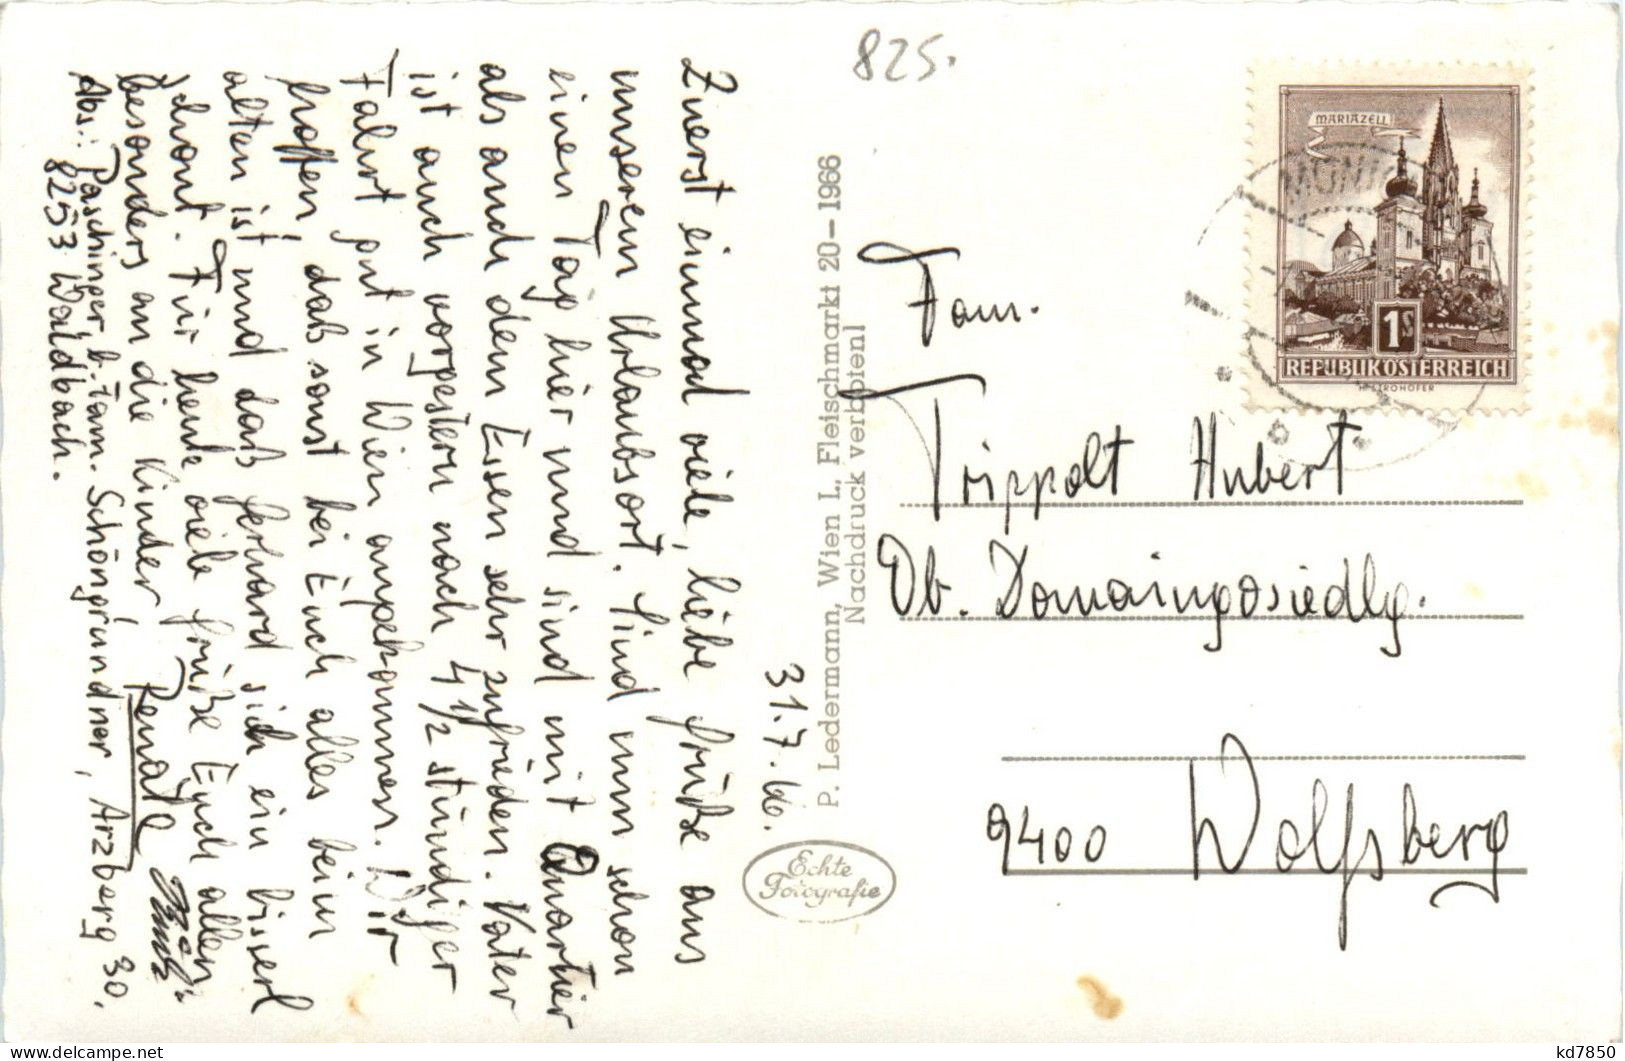 825.
31.7.66.
Zuerst einmal viele, liebe Grüße aus
unserem Urlaubsort. Sind nun schon
einen Tag hier und sind mit Quartier
als auch dem Essen sehr zufrieden. Vater
ist auch vorgestern nach 4 1/2 stündiger
Fahrt gut in Wien angekommen. Wir
hoffen, daß sonst bei Euch alles beim
alten ist und daß Gerhard sich ein bisserl
schont. Für heute viele Grüße Euch allen
besonders an die Kinder! Renate
Abs.: Paschinger, b. Fam. Schöngrundner, Arzberg 30,
8253 Waldbach.
P. Ledermann, Wien I., Fleischmarkt 20-1966
Nachdruck verboten!
Echte
Fotografie
MARIAZELL
1S
REPUBLIK ÖSTERREICH
H. STROHOFER
Fam.
Trippolt Hubert
Ob. Domaingosiedlg.
9400 Wolfsberg
kd7850